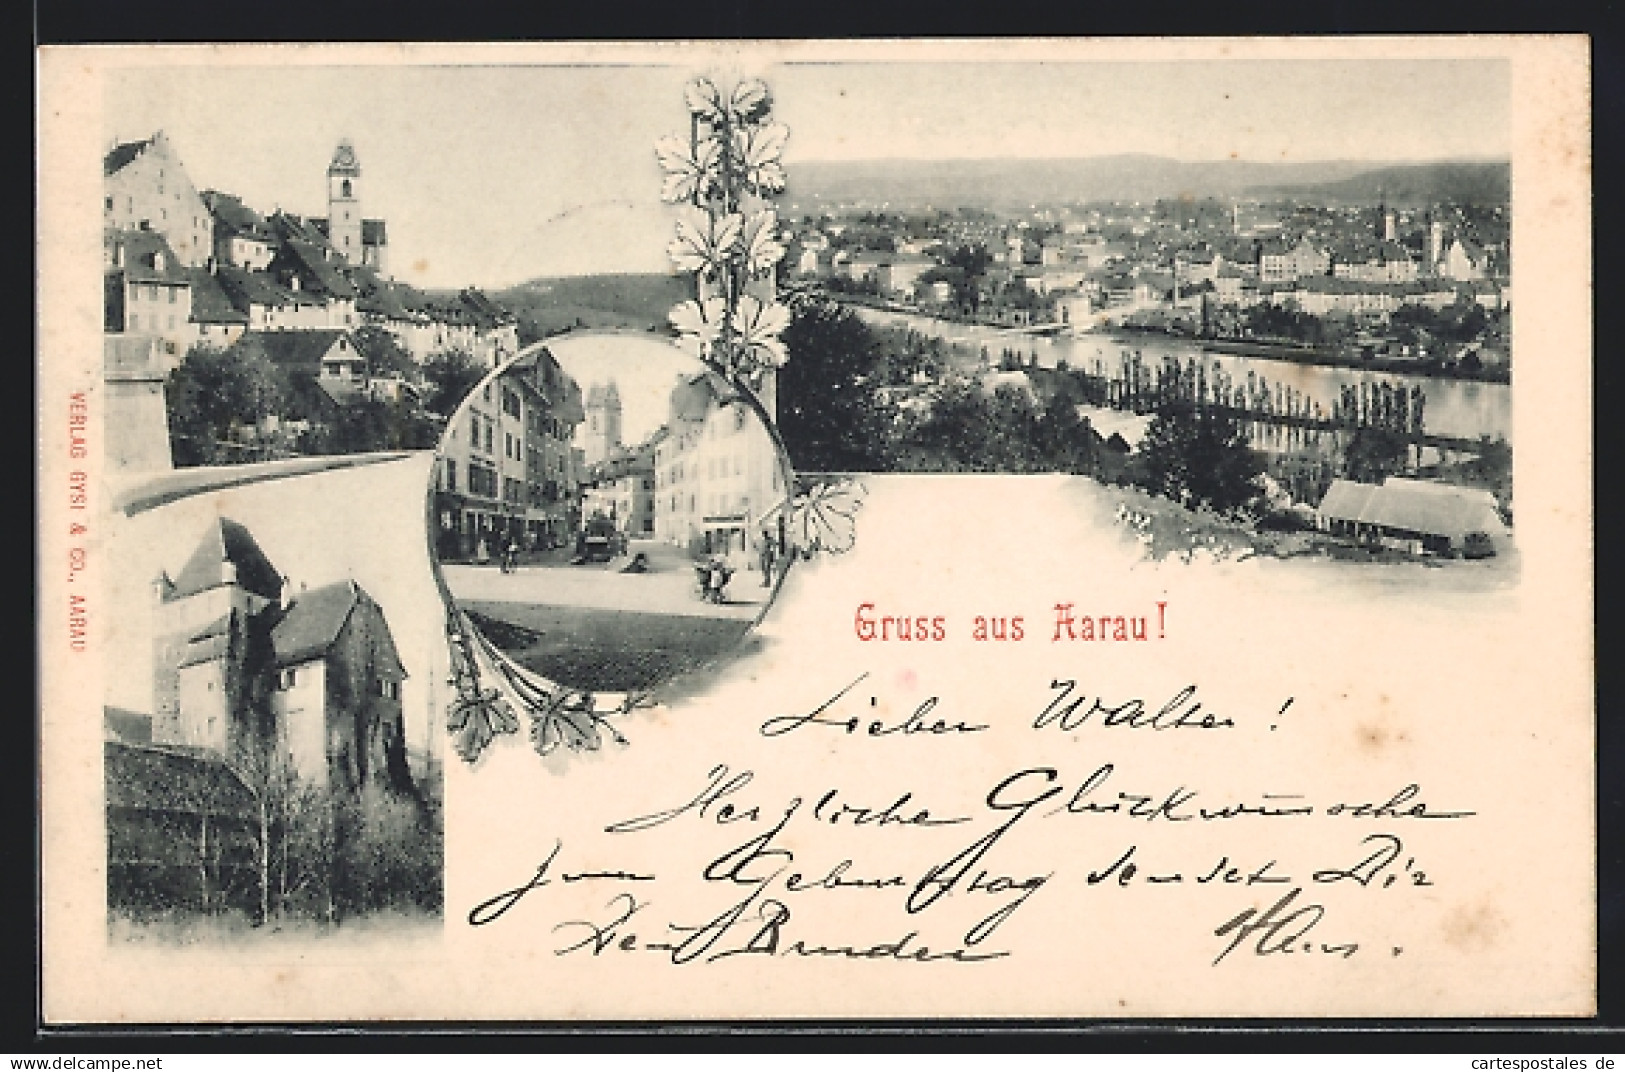 VERLAG GYSI & CO., AARAU
Gruss aus Aarau!
Lieber Walter!
Herzliche Glückwünsche
zum Geburtstag sendet Dir
Dein Bruder Hans.
the best way to collect
cartespostales de